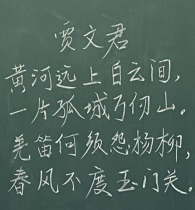 贾文君
黄河远上白云间，
一片孤城万仞山。
羌笛何须怨杨柳，
春风不度玉门关。